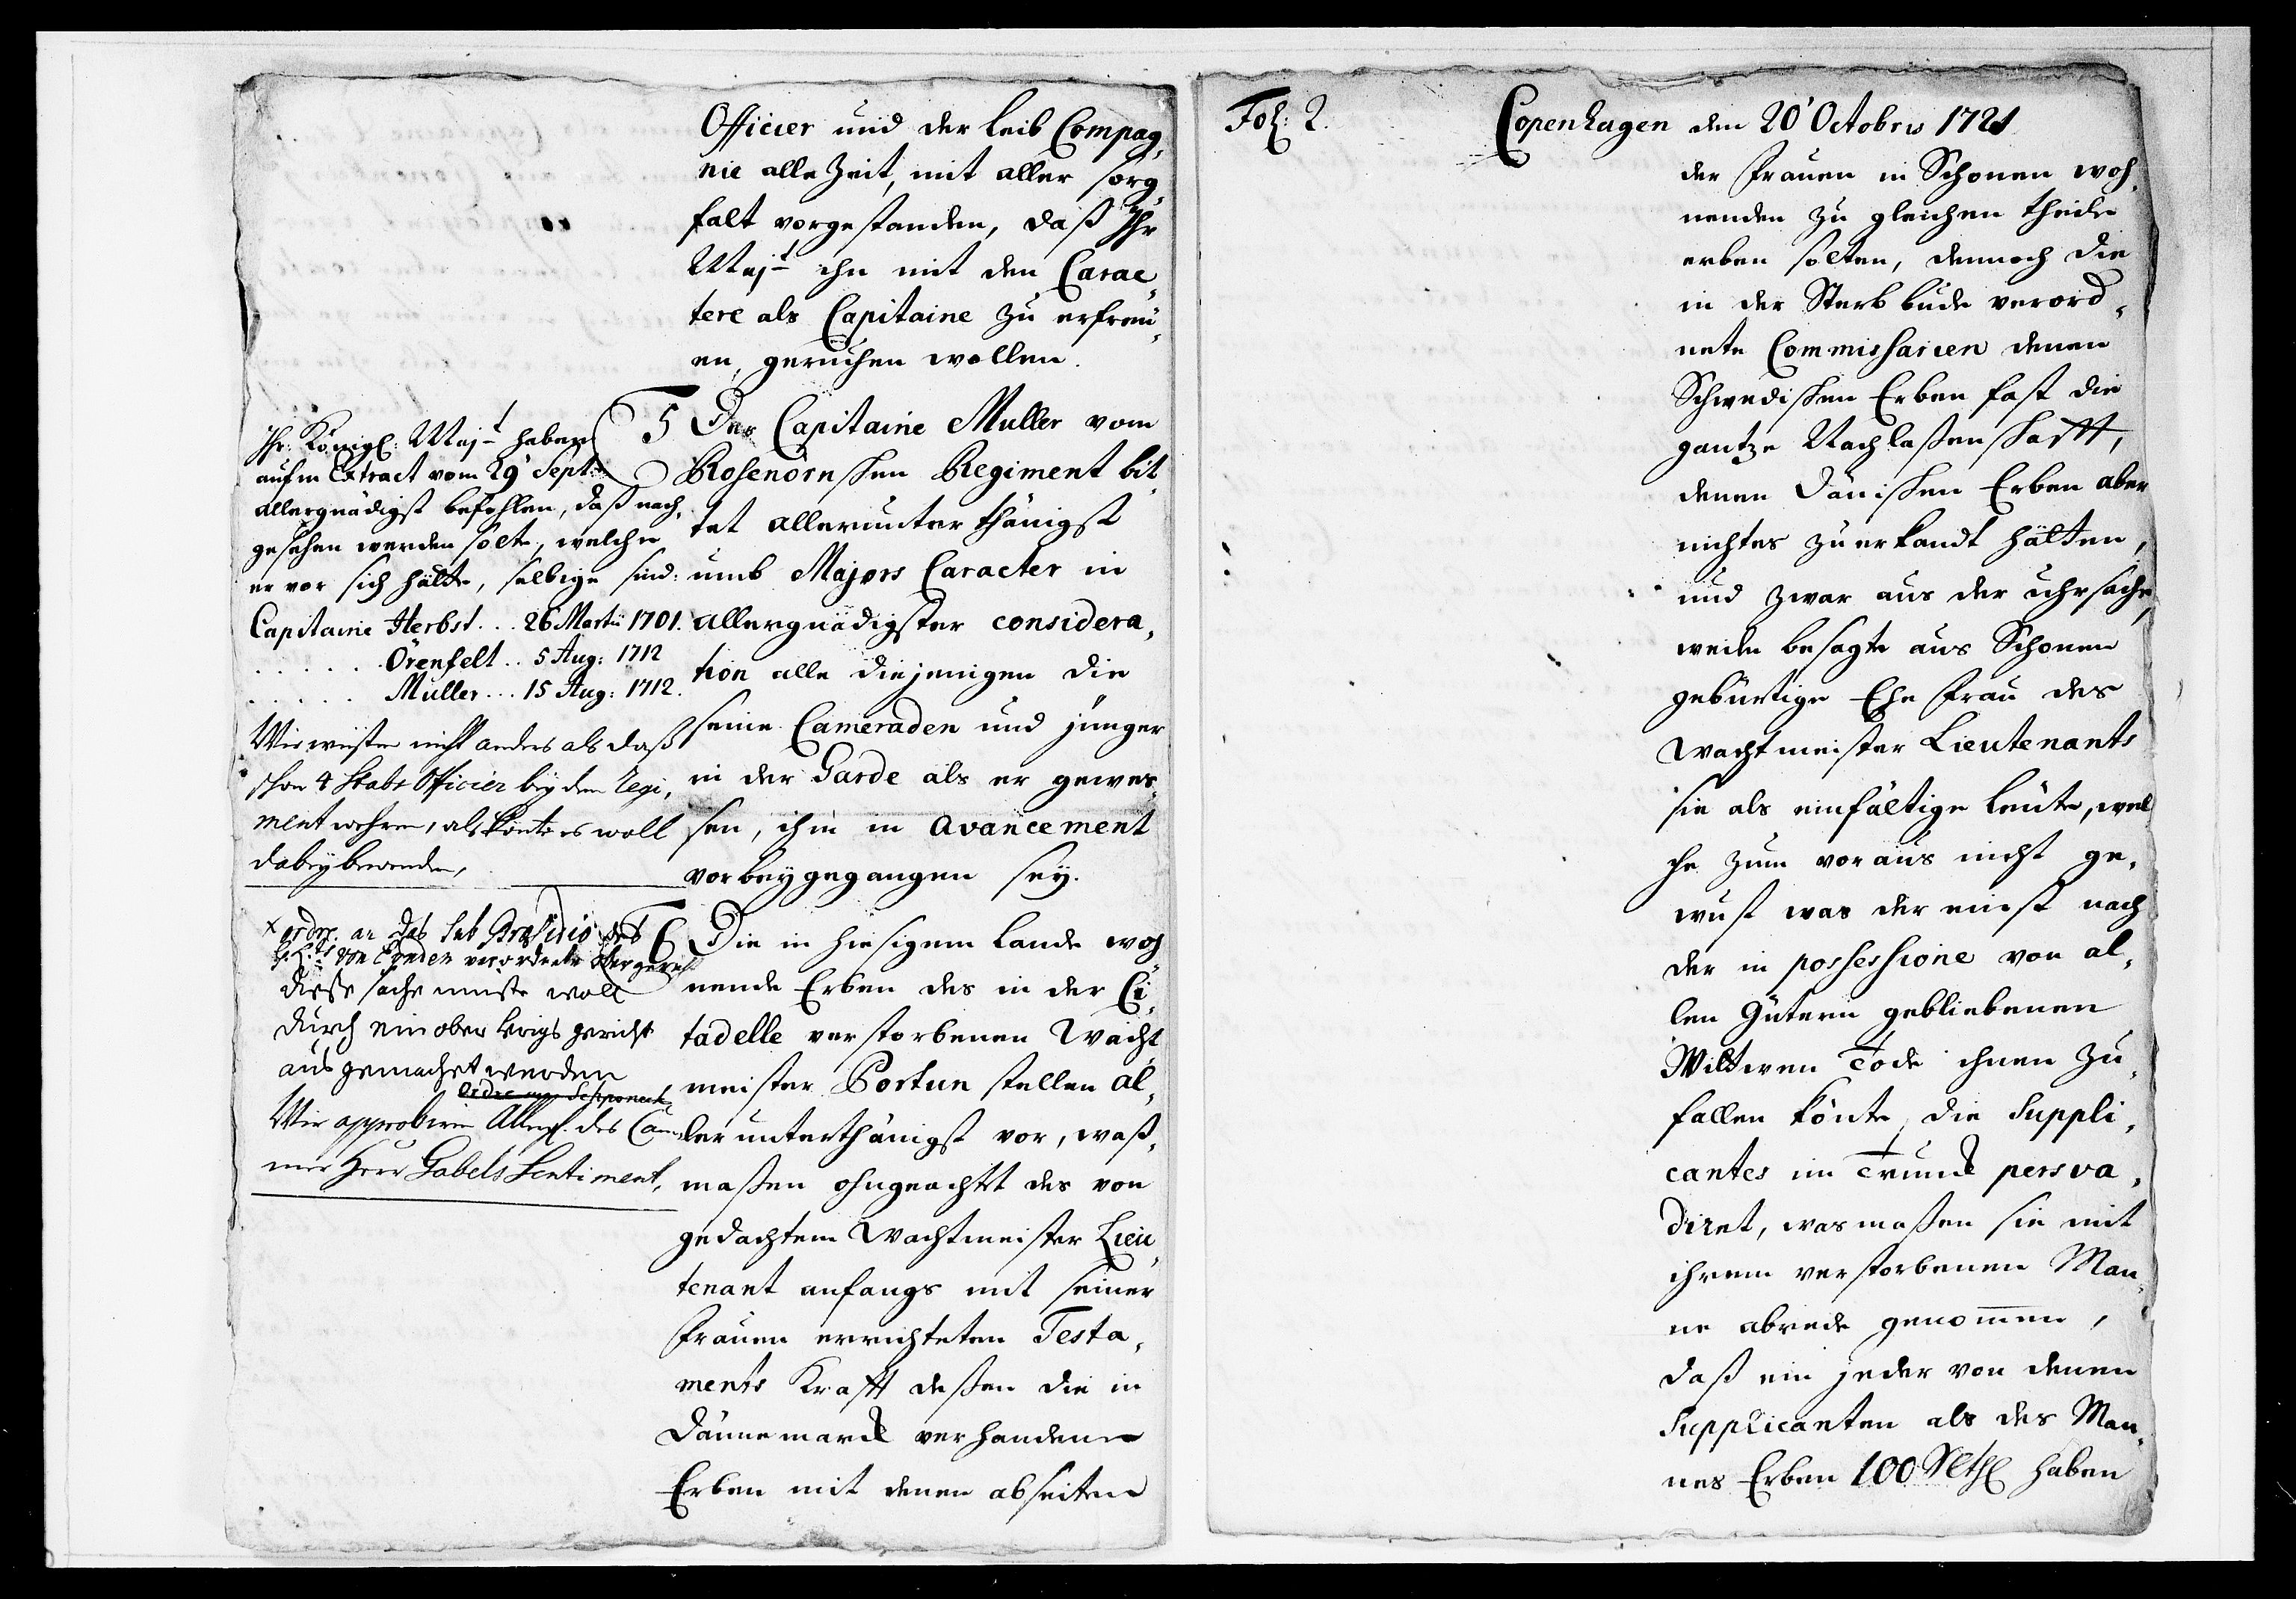 Officier und der Leib Compag,
nie alle Zeit, mit aller sorg
falt vorgestanden, daß Ihr
Maj:t ihn mit den Carac,
tere als Capitaine zu erfreu,
en, geruhen wollen.
5 Der Capitaine Muller vom
Rosenörnschen Regiment bit,
tet allerunterthänigst
umb Majors Caracter in
allergnädigster considera,
tion alle diejenigen die
seine Cameraden und jünger
in der Garde als er gewes,
sen, ihm in avancement
vorbeygegangen sey.
Ihr: Königl: Maj:t haben
aufm Extract vom 29' Sept:
allergnädigst befohlen, daß nach,
gesehen werden solte, welche
er vor sich hätte, selbige sind:
Capitaine Herbst... 26 Martii 1701.
. . . . . Örenfelt.. 5 Aug: 1712
. . . . . Müller... 15 Aug: 1712.
Wir wüsten nicht anders als daß
schon 4 Stabs Officier bey dem Regi,
ment wehren, als könte es woll
dabey bewenden,
6 Die in hiesigem Lande woh
nende Erben des in der Ci,
tadelle verstorbenen Wacht
meister Portun stellen al,
lerunterthänigst vor, waß,
maßen ohngeachtet des von
gedachtem Wachtmeister Lieu
tenant anfangs mit seiner
Frauen errichteten Testa,
ments Krafft deßen die in
Dännemarck verhandene
Erben mit denen abseiten
x ordre an das sub Præsidio des
von verordnete Obergericht
diesse sache muste woll
durch ein ober krigs gericht
aus gemachet werden
ordre
Wir approbiren Allergl. des Cam,
mer Herr Gabels Sentiment,
Fol: 2.
Copenhagen den 20' Octobris 1721
der Frauen in Schonen woh,
nenden zu gleichen theile
erben solten, dennoch die
in der Sterbbude verord,
nete Commissarien denen
Schwedischen Erben fast die
gantze Nachlaßenschafft,
denen Dänischen Erben aber
nichtes zuerkandt hätten,
und zwar aus der Uhrsache,
weile besagte aus Schonen
gebürtige Ehe Frau des
Wachtmeister Lieutenants
sie als einfältige leute, wel
che zum voraus nicht ge,
wust was der einst nach
der in possessione von al,
len Gütern gebliebenen
Wittwen Tode ihnen zu,
fallen könte, die Suppli,
cantes im Trunck persva,
diret, was maßen sie mit
ihrem verstorbenen Man,
ne abrede genommen,
daß ein jeder von denen
Supplicanten als des Man,
nes Erben 100 Rthl haben